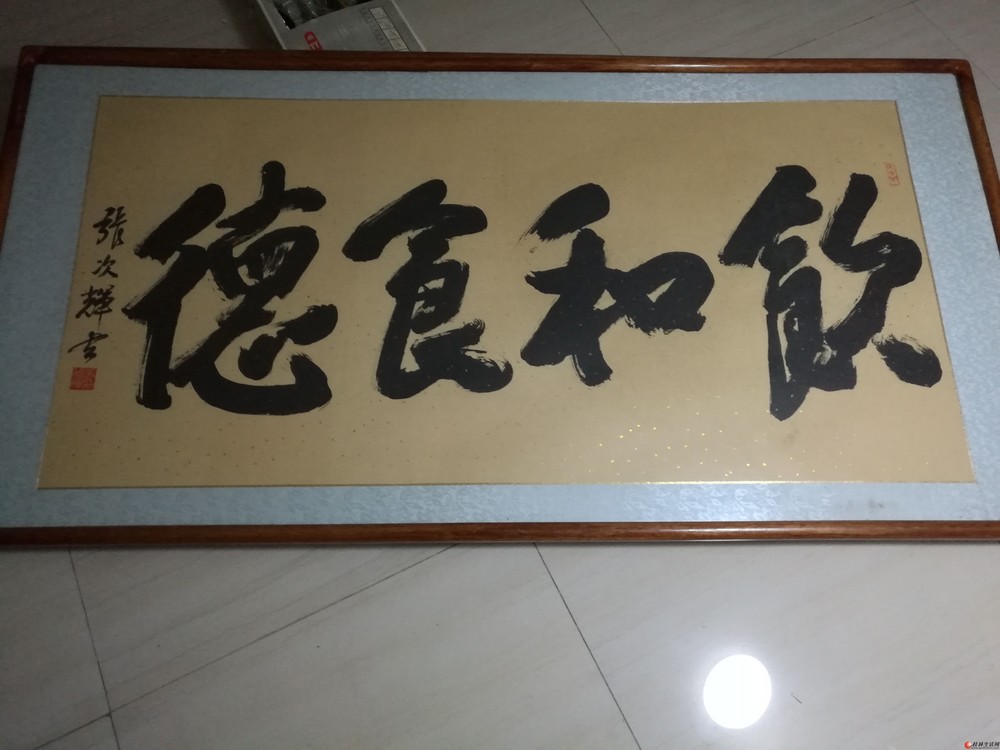 飲和食德
張次輝書
桂林生活网